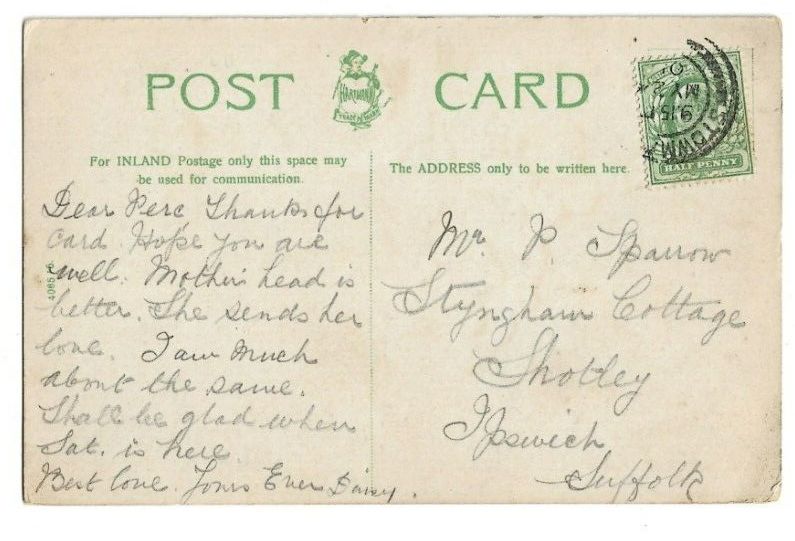 POST CARD
HARTMANN
TRADE MARK
For INLAND Postage only this space may
be used for communication.
The ADDRESS only to be written here.
HALF PENNY
MY 2
9 15
TOWN
Dear Perc Thanks for
card. Hope you are
well. Mother's head is
better. She sends her
love. I am much
about the same.
Shall be glad when
Sat. is here.
Best love. Yours Ever Daisy.
Mr P. Sparrow
Styngham Cottage
Shotley
Ipswich
Suffolk